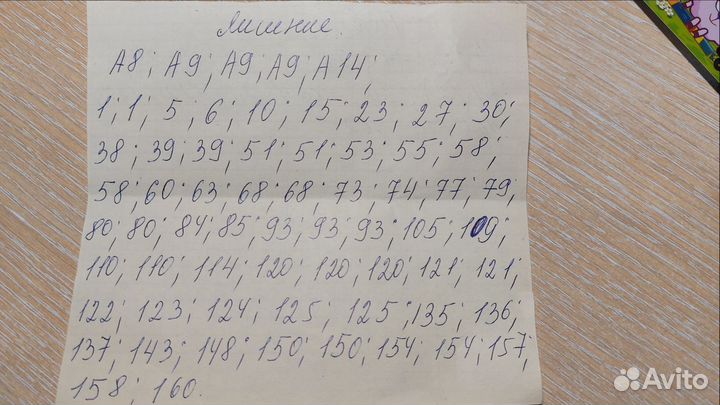 Лишние.
А8; А9; А9; А9; А14;
1; 1; 5; 6; 10; 15; 23; 27; 30;
38; 39; 39; 51; 51; 53; 55; 58;
58; 60; 63; 68; 68; 73; 74; 77; 79;
80; 80; 84; 85; 93; 93; 93; 105; 109;
110; 110; 114; 120; 120; 120; 121; 121;
122; 123; 124; 125; 125; 135; 136;
137; 143; 148; 150; 150; 154; 154; 157;
158; 160.
Avito